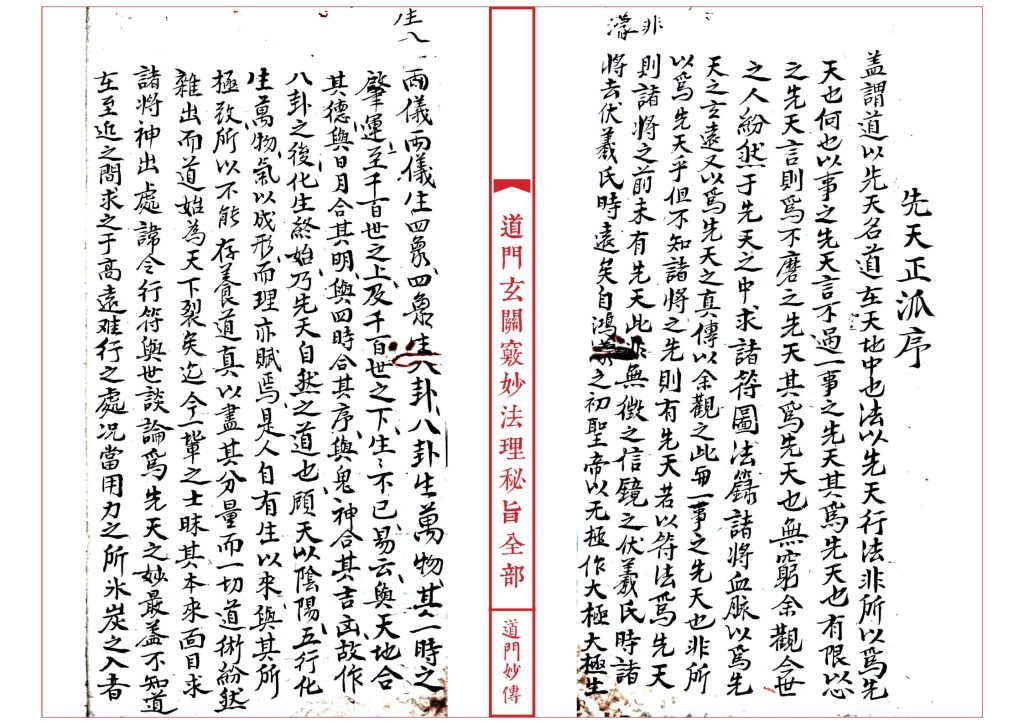 先天正派序
盖謂道以先天名道在天地中也法以先天行法非所以爲先
天也何也以事之先天言不過一事之先天其爲先天也有限以
之先天言則爲不磨之先天其爲先天也無窮余觀今世
之人紛然于先天之中求諸符圖法籙諸將血脉以爲先
天之玄遠又以爲先天之真傳以余觀之此毋一事之先天也非所
以爲先天乎但不知諸將之先則有先天若以符法爲先天
則諸將之前未有先天此無徵之信鏡之伏羲氏時諸
將去伏羲氏時遠矣自鴻之初聖帝以无極作大極大極生
非濛
道門玄關竅妙法理秘旨全部
道門妙傳
兩儀兩儀生四象四象生八卦八卦生萬物其一時之
肇運至千百世之上及千百世之下生〻不已易云與天地合
其德與日月合其明與四時合其序與鬼神合其吉凶故作
八卦之後化生終始乃先天自然之道也顧天以陰陽五行化
生萬物氣以成形而理亦賦焉是人自有生以來與其所
極致所以不能存養道真以盡其分量而一切道術紛然
雜出而道始為天下裂矣迄今一輩之士昧其本來面目求
諸將神出處諱令行符與世談論爲先天之妙最盖不知道
在至近之間求之于高遠难行之處况當用力之所氷炭之入者
生八